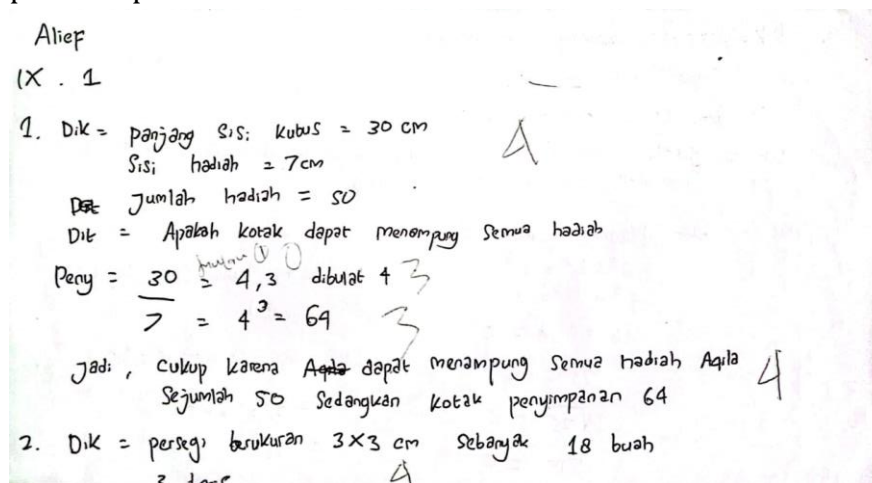 Alief
IX . 1
1. Dik = panjang sisi kubus = 30 cm
4
sisi hadiah = 7 cm
Jumlah hadiah = 50
Dit = Apakah kotak dapat menampung semua hadiah
Peny = 30 = 4,3 dibulat 4 3
7 = 4³ = 64 3
Jadi, cukup karena Aqila dapat menampung semua hadiah Aqila
4
Sejumlah 50 Sedangkan kotak penyimpanan 64
2. Dik = persegi berukuran 3x3 cm sebanyak 18 buah
4